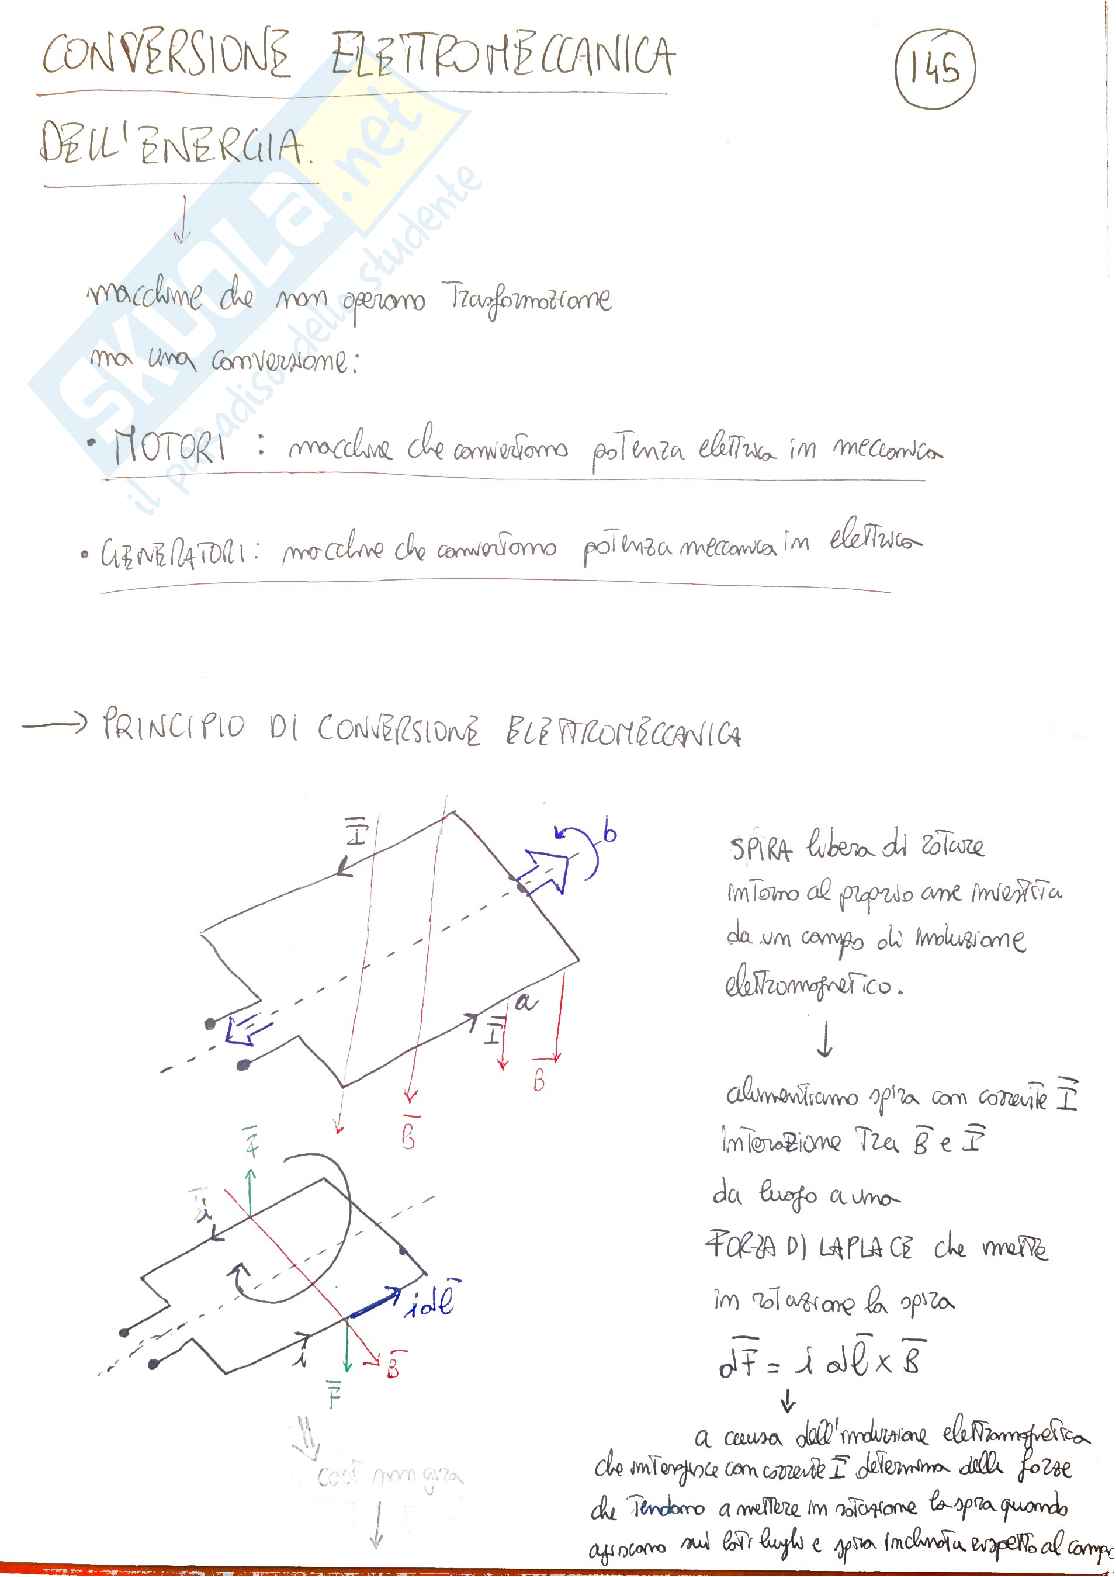 CONVERSIONE ELETTROMECCANICA
145
DELL'ENERGIA.
SKUOLA.net
il paradiso dello studente
macchine che non operano Trasformazione
ma una conversione:
• MOTORI : macchine che convertono potenza elettrica in meccanica
• GENERATORI: macchine che convertono potenza meccanica in elettrica
→ PRINCIPIO DI CONVERSIONE ELETTROMECCANICA
I
b
a
I
B
B
SPIRA libera di rotare
intorno al proprio asse investita
da un campo di induzione
elettromagnetico.
↓
alimentiamo spira con corrente I
interazione Tra B e I
da luogo a una
FORZA DI LAPLACE che mette
in rotazione la spira
dF = i dl × B
F
i
idl
i
B
F
così non gira
a causa dell'induzione elettromagnetica
che interagisce con corrente I determina delle forze
che Tendono a mettere in rotazione la spira quando
agiscono sui lati lunghi e spira inclinata rispetto al campo